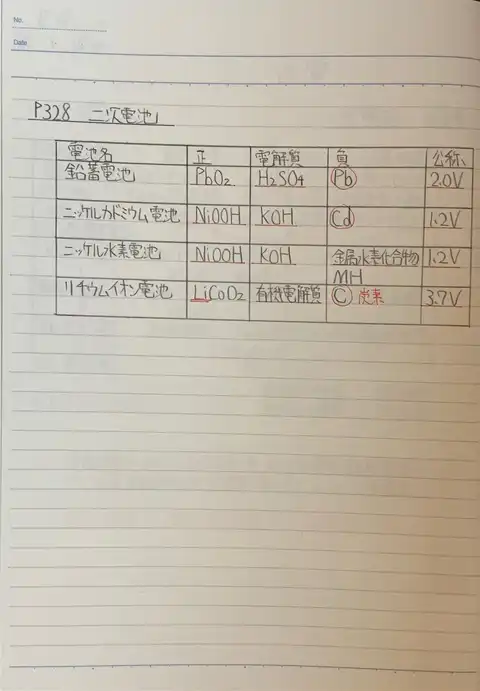 No.
Date
P328 二次電池
電池名 正 電解質 負 公称
鉛蓄電池 PbO2 H2SO4 Pb 2.0V
ニッケルカドミウム電池 NiOOH KOH Cd 1.2V
ニッケル水素電池 NiOOH KOH 金属水素化合物 1.2V
MH
リチウムイオン電池 LiCoO2 有機電解質 C 炭素 3.7V